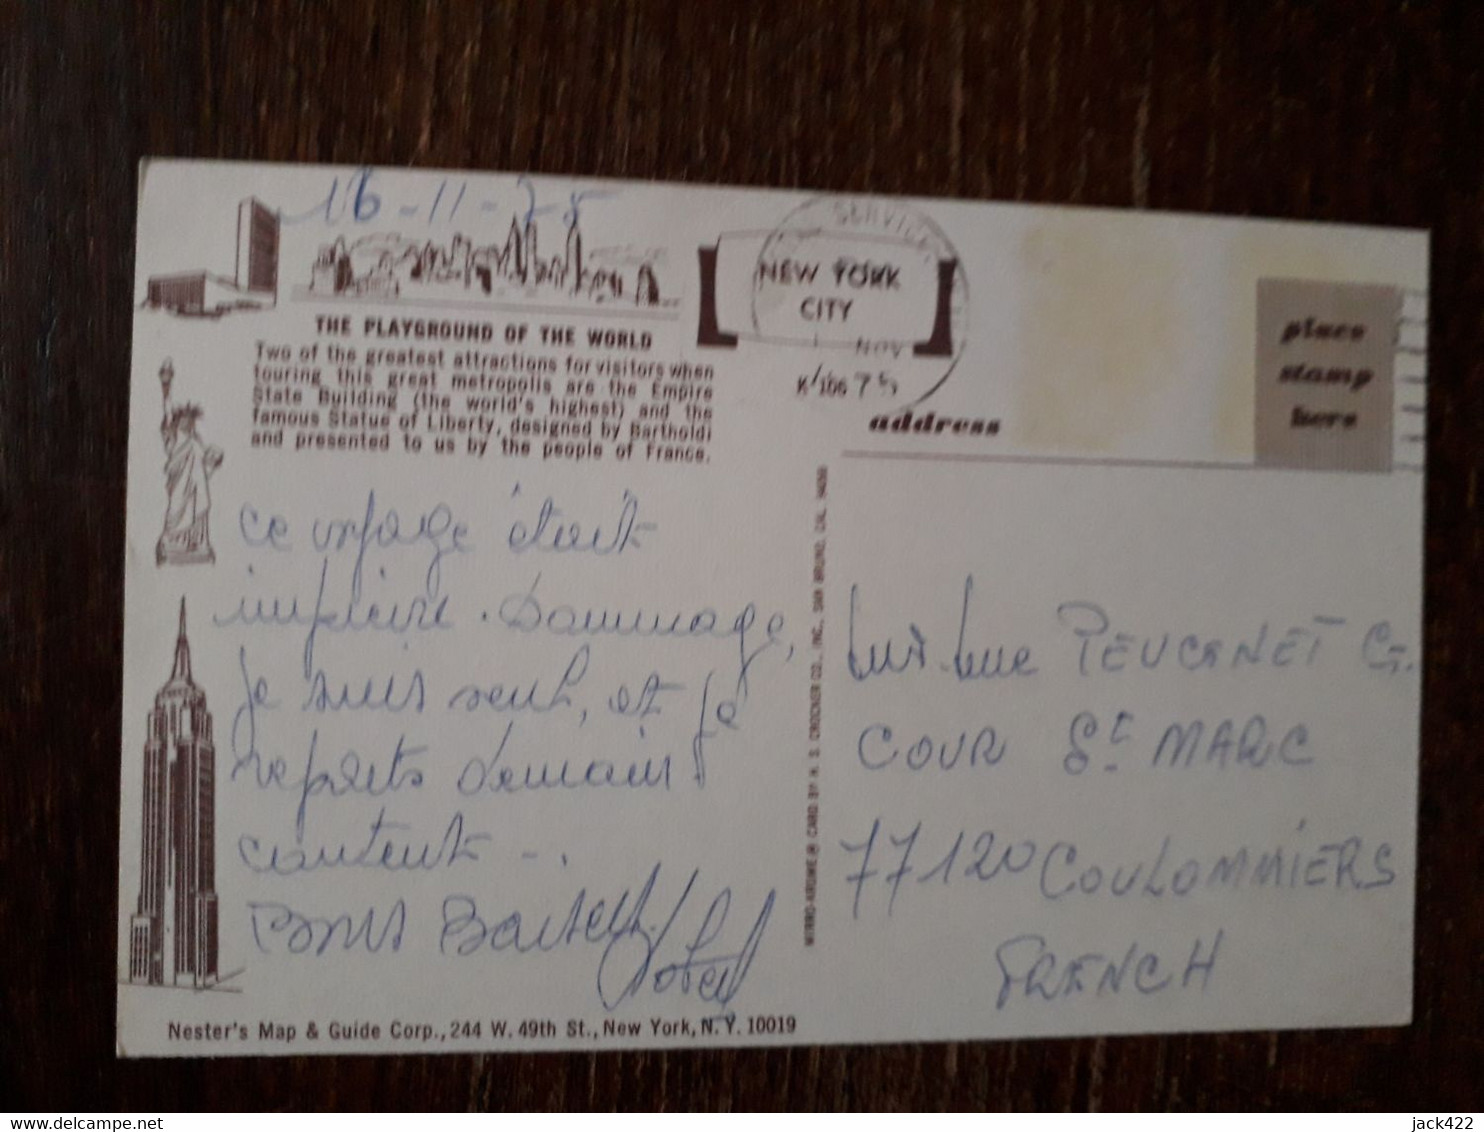 16-11-75
THE PLAYGROUND OF THE WORLD
Two of the greatest attractions for visitors when
touring this great metropolis are the Empire
State Building (the world's highest) and the
famous Statue of Liberty, designed by Bartholdi
and presented to us by the people of France.
ce voyage était
Dommage,
je suis seul, et je
demain
content -.
Bons Baisers
Nester's Map & Guide Corp., 244 W. 49th St., New York, N. Y. 10019
MIRRO-KROME® CARD BY H. S. CROCKER CO., INC., SAN BRUNO, CAL. 94066
SERVICE
NEW YORK
CITY
NOV
75
address
place
stamp
here
PEUCANET G.
COUR St MARC
77120 COULOMMIERS
FRENCH
jack422